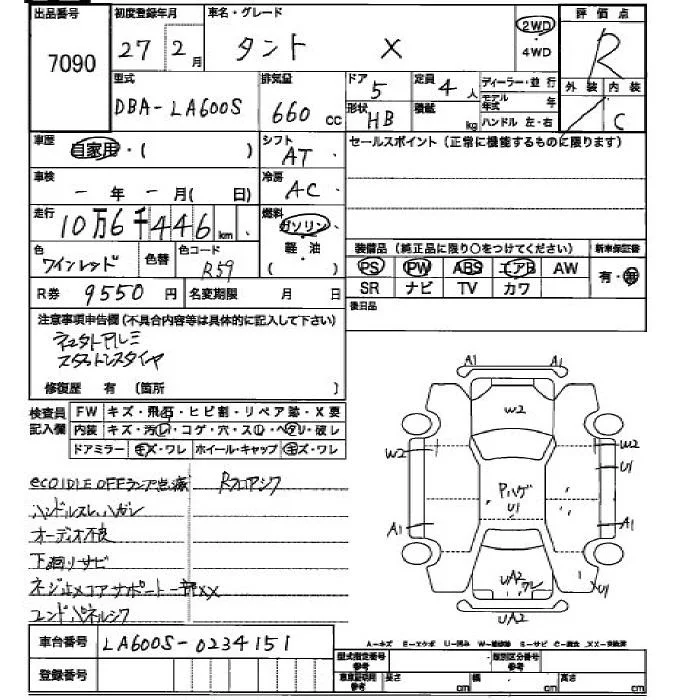 出品番号 初度登録年月 車名・グレード 評価点
7090 27年2月 タント X 2WD・4WD R
型式 排気量 ドア 定員 ディーラー・並行 外装 内装
DBA-LA600S 660cc 5 4人 モデル年式 年 / C
形状 HB 積載 kg ハンドル 左・右
車歴 自家用・( ) シフト AT セールスポイント(正常に機能するものに限ります)
車検 -年-月( 日) 冷房 AC
走行 10万6千446km 燃料 ガソリン・軽油( )
色 ワインレッド 色替 色コード R59
装備品(純正品に限り○をつけてください) 新車保証書
PS PW ABS エアB AW 有・無
SR ナビ TV カワ
R券 9550円 名変期限 月 日 後日品
注意事項申告欄(不具合内容等は具体的に記入して下さい)
スタットレスタイヤ
修復歴 有 (箇所 )
検査員記入欄 FW キズ・飛石・ヒビ割・リペア跡・X要
内装 キズ・汚レ・コゲ・穴・スレ・ヘタリ・破レ
ドアミラー キズ・ワレ ホイール・キャップ キズ・ワレ
ecoIDLE OFFランプ点滅 Rフロアシワ
ハンドルスレ、ハガレ
オーディオ不良
下廻りサビ
ネジ止メコアサポート一部XX
エンドパネルシワ
A1 A1
W2
W2 W2
U1
Pハゲ
U1
A1 A1
UA2 ワレ U1
UA2
車台番号 LA600S-0234151
登録番号
A-キズ E-エクボ U-凹み W-補修跡 S-サビ C-腐食 XX-交換済
型式指定番号参考 類別区分番号参考
長さ cm 幅 cm 高さ cm